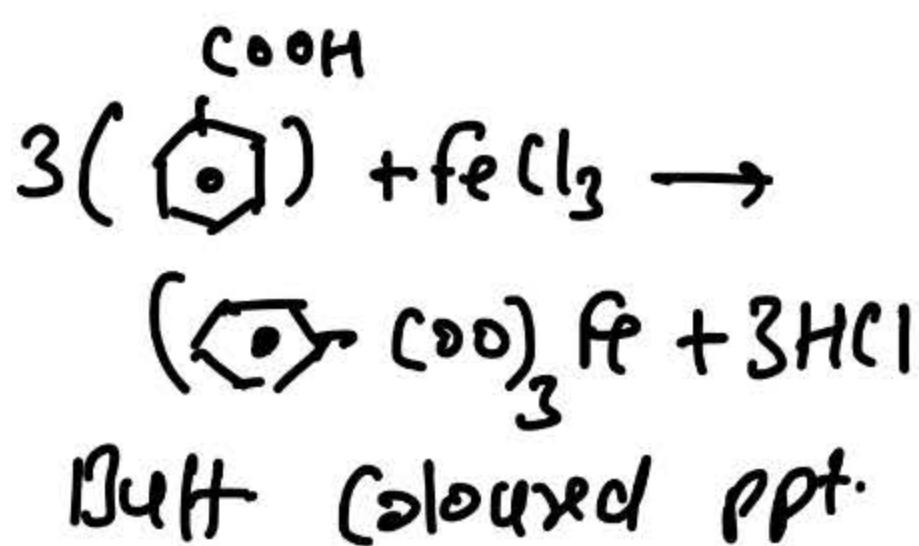 COOH
3( ) + FeCl3 →
( COO)3 Fe + 3HCl
Buff Coloured ppt.